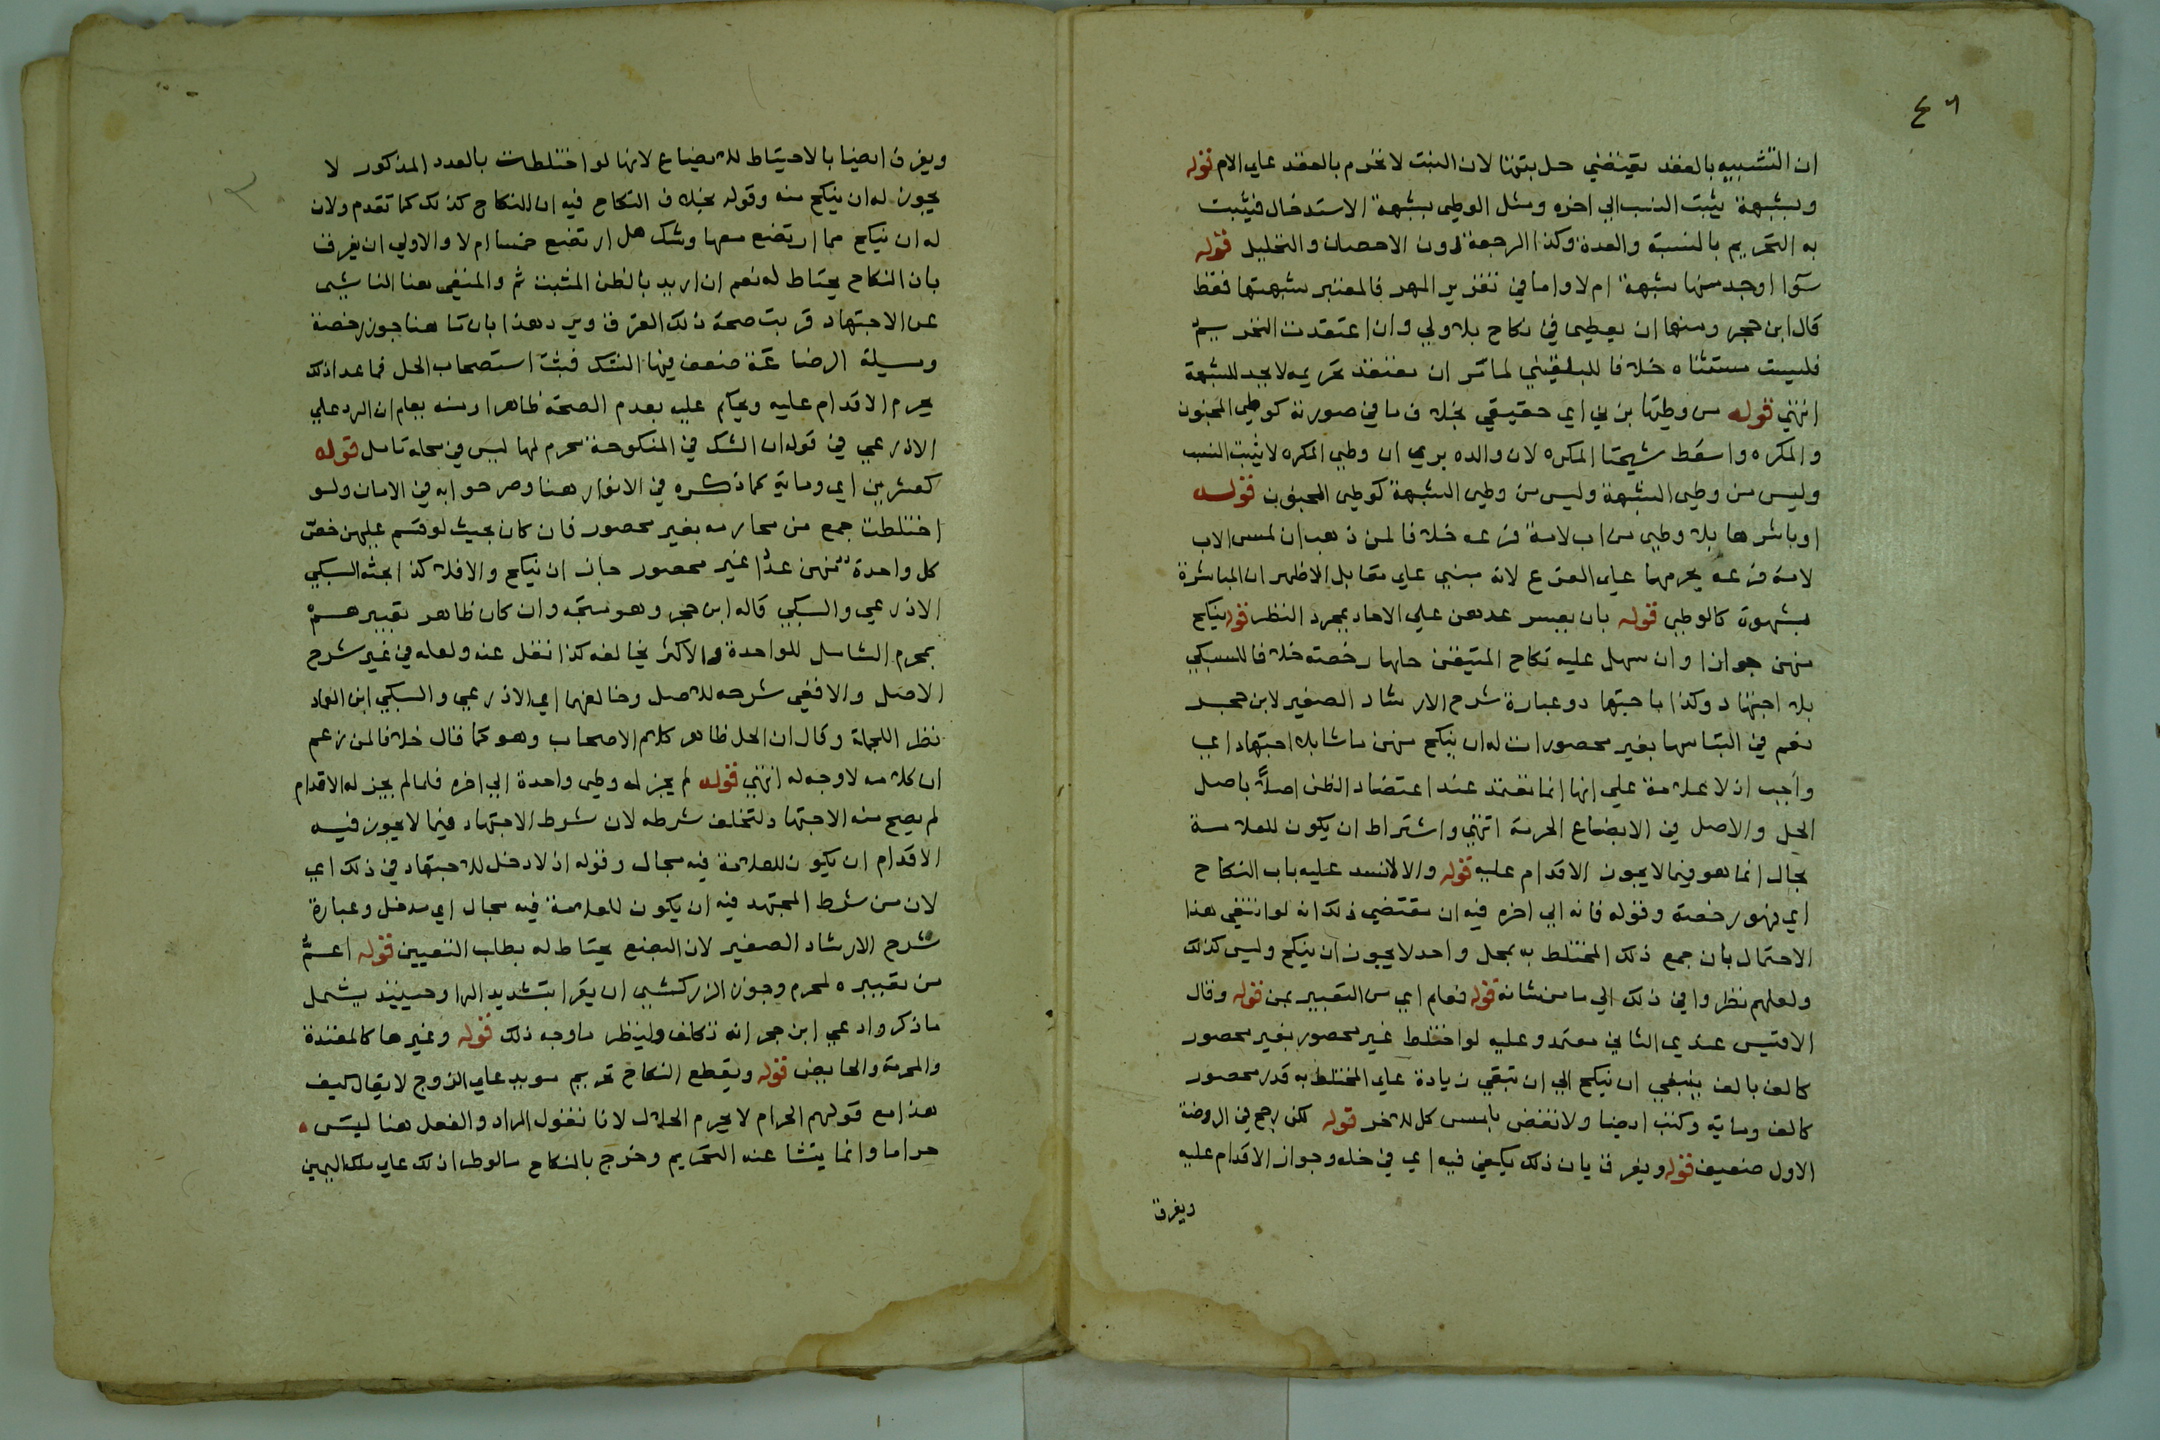 ٤٦
ان التشبيه بالعقد يقتضي حل بنتها لان البنت لا تحرم بالعقد علي الام قوله
وبشبهة يثبت النسب الي اخره ومثل الوطي بشبهة الاستدخال فيثبت
به التحريم بالنسبة والعدة وكذا الرجعة دون الاحصان والتحليل قوله
سوا اوجد منها شبهة ام لا واما في تقرير المهر فالمعتبر شبهتها فقط
قال ابن حجر ومنها ان يعطي في نكاح بلا ولي وان اعتقدت التحريم
فليست مستثناه خلافا للبلقيني لما مر ان معتقد تحريمه لا يحد للشبهة
انتهي قوله من وطيها بزني اي حقيقي بخلاف ما في صورته كوطي المجنون
والمكره واسقط شيخنا المكره لان والده يري ان وطي المكره لا يثبت النسب
وليس من وطي الشبهة وليس من وطي الشبهة كوطي المجنون قوله
او باشرها بلا وطي من اب لامة فرعه خلافا لمن ذهب ان لمس الاب
لامة فرعه يحرمها علي الفرع لانه مبني علي مقابل الاظهر ان المباشرة
بشهوة كالوطي قوله بان يعسر عدهن علي الاحاد بمجرد النظر قوله ينكح
منهن جوازا وان سهل عليه نكاح المتيقن حلها رخصة خلافا للسبكي
بلا اجتهاد وكذا باجتهاد وعبارة شرح الارشاد الصغير لابن حجر
نعم في التباسها بغير محصورات له ان ينكح منهن ما شا بلا اجتهاد اي
واجب اذ لا علامة علي انها انما تعتمد عند اعتضاد الظن اصلا باصل
الحل والاصل في الابضاع الحرمة انتهي واشتراط ان يكون للعلامة
مجال انما هو فيما لا يجوز الاقدام عليه قوله والا لانسد عليه باب النكاح
اي فهو رخصة وقوله فانه الي اخره فيه ان مقتضي ذلك انه لو انتفي هذا
الاحتمال بان جمع ذلك المختلط به بمحل واحد لا يجوز ان ينكح وليس كذلك
ولعلهم نظروا في ذلك الي ما من شانه قوله فعلم اي من التعبير بمن قوله وقال
الاقيس عندي الثاني معتمد وعليه لو اختلط غير محصور بغير محصور
كالف بالف ينبغي ان ينكح الي ان تبقي زيادة علي المختلط به قدر محصور
كالف وماية وكتب ايضا ولا نقض بلمس كل للاخر قوله لكن رجح في الروضة
الاول ضعيف قوله ويفرق بان ذلك يكفي فيه اي في حله وجواز الاقدام عليه
ويفرق
ويفرق ايضا بالاحتياط للابضاع لانها لو اختلطت بالعدد المذكور لا
يجوز له ان ينكح منه وقوله بخلاف النكاح فيه ان للنكاح كذلك كما تقدم ولان
له ان ينكح مما ارتضع معها وشك هل ارتضع خمسا ام لا والاولي ان يفرق
بان النكاح يحتاط له نعم ان اريد بالظن المثبت ثم والمنفي هنا الناشي
عن الاجتهاد قربت صحة ذلك الفرق ويرد هذا بان ما هنا جوز رخصة
وسيلة الرضاعة ضعف فيها الشك فثبت استصحاب الحل فما عدا ذلك
يحرم الاقدام عليه ويحكم عليه بعدم الصحة ظاهرا ومنه يعلم ان الرد علي
الاذرعي في قوله ان الشك في المنكوحة محرم لها ليس في محله تامل قوله
كعشرين اي وماية كما ذكره في الانوار هنا وصرحوا به في الامان ولو
اختلطت جمع من محارمه بغير محصور فان كان بحيث لو قسم عليهن خص
كل واحدة منهن عددا غير محصور جاز ان ينكح والا فلا كذا بحثه السبكي
الاذرعي والسبكي قاله ابن حجر وهو متجه وان كان ظاهر تعبيرهم
بمحرم الشامل للواحدة والاكثر يخالفه كذا نقل عنه ولعله في غير شرح
الاصل والا ففي شرحه للاصل وخالفهما اي الاذرعي والسبكي ابن العماد
نظر اللجملة وقال ان الحل ظاهر كلام الاصحاب وهو كما قال خلافا لمن زعم
ان كلامه لا وجه له انتهي قوله لم يجز له وطي واحدة الي اخره فلما لم يجز له الاقدام
لم يصح منه الاجتهاد لتخلف شرطه لان شرط الاجتهاد فيما لا يجوز فيه
الاقدام ان يكون للعلامة فيه مجال وقوله اذ لا دخل للاجتهاد في ذلك اي
لان من شرط المجتهد فيه ان يكون للعلامة فيه مجال اي مدخل وعبارة
شرح الارشاد الصغير لان البضع يحتاط له بطلب التعيين قوله اعم
من تعبيره لمحرم وجوز الزركشي ان يقرا بتشديد الرا وحينيذ يشمل
ما ذكر وادعي ابن حجر انه تكلف ولينظر ما وجه ذلك قوله وغيرها كالمعتدة
والمحرمة والحايض قوله ويقطع النكاح تحريم موبد علي الزوج لا يقال كيف
هذا مع قولهم الحرام لا يحرم الحلال لانا نقول المراد والفعل هنا ليس
حراما وانما ينشا عنه التحريم وخرج بالنكاح مالو طرا ذلك علي ملك اليمين